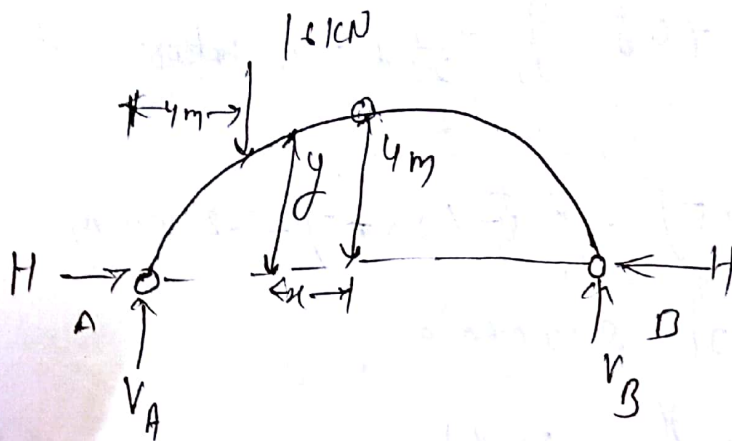 16 KN
4m
y
4m
H
H
x
A
B
V_A
V_B